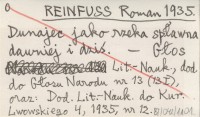 REINFUSS Roman 1935.
Dunajec jako rzeka spławna
dawniej i dziś. — Głos
Lit.-Nauk., dod.
do Głosu Narodu nr 13 (131),
oraz: Dod. Lit.-Nauk. do Kur.
Lwowskiego 4, 1935, nr 12.